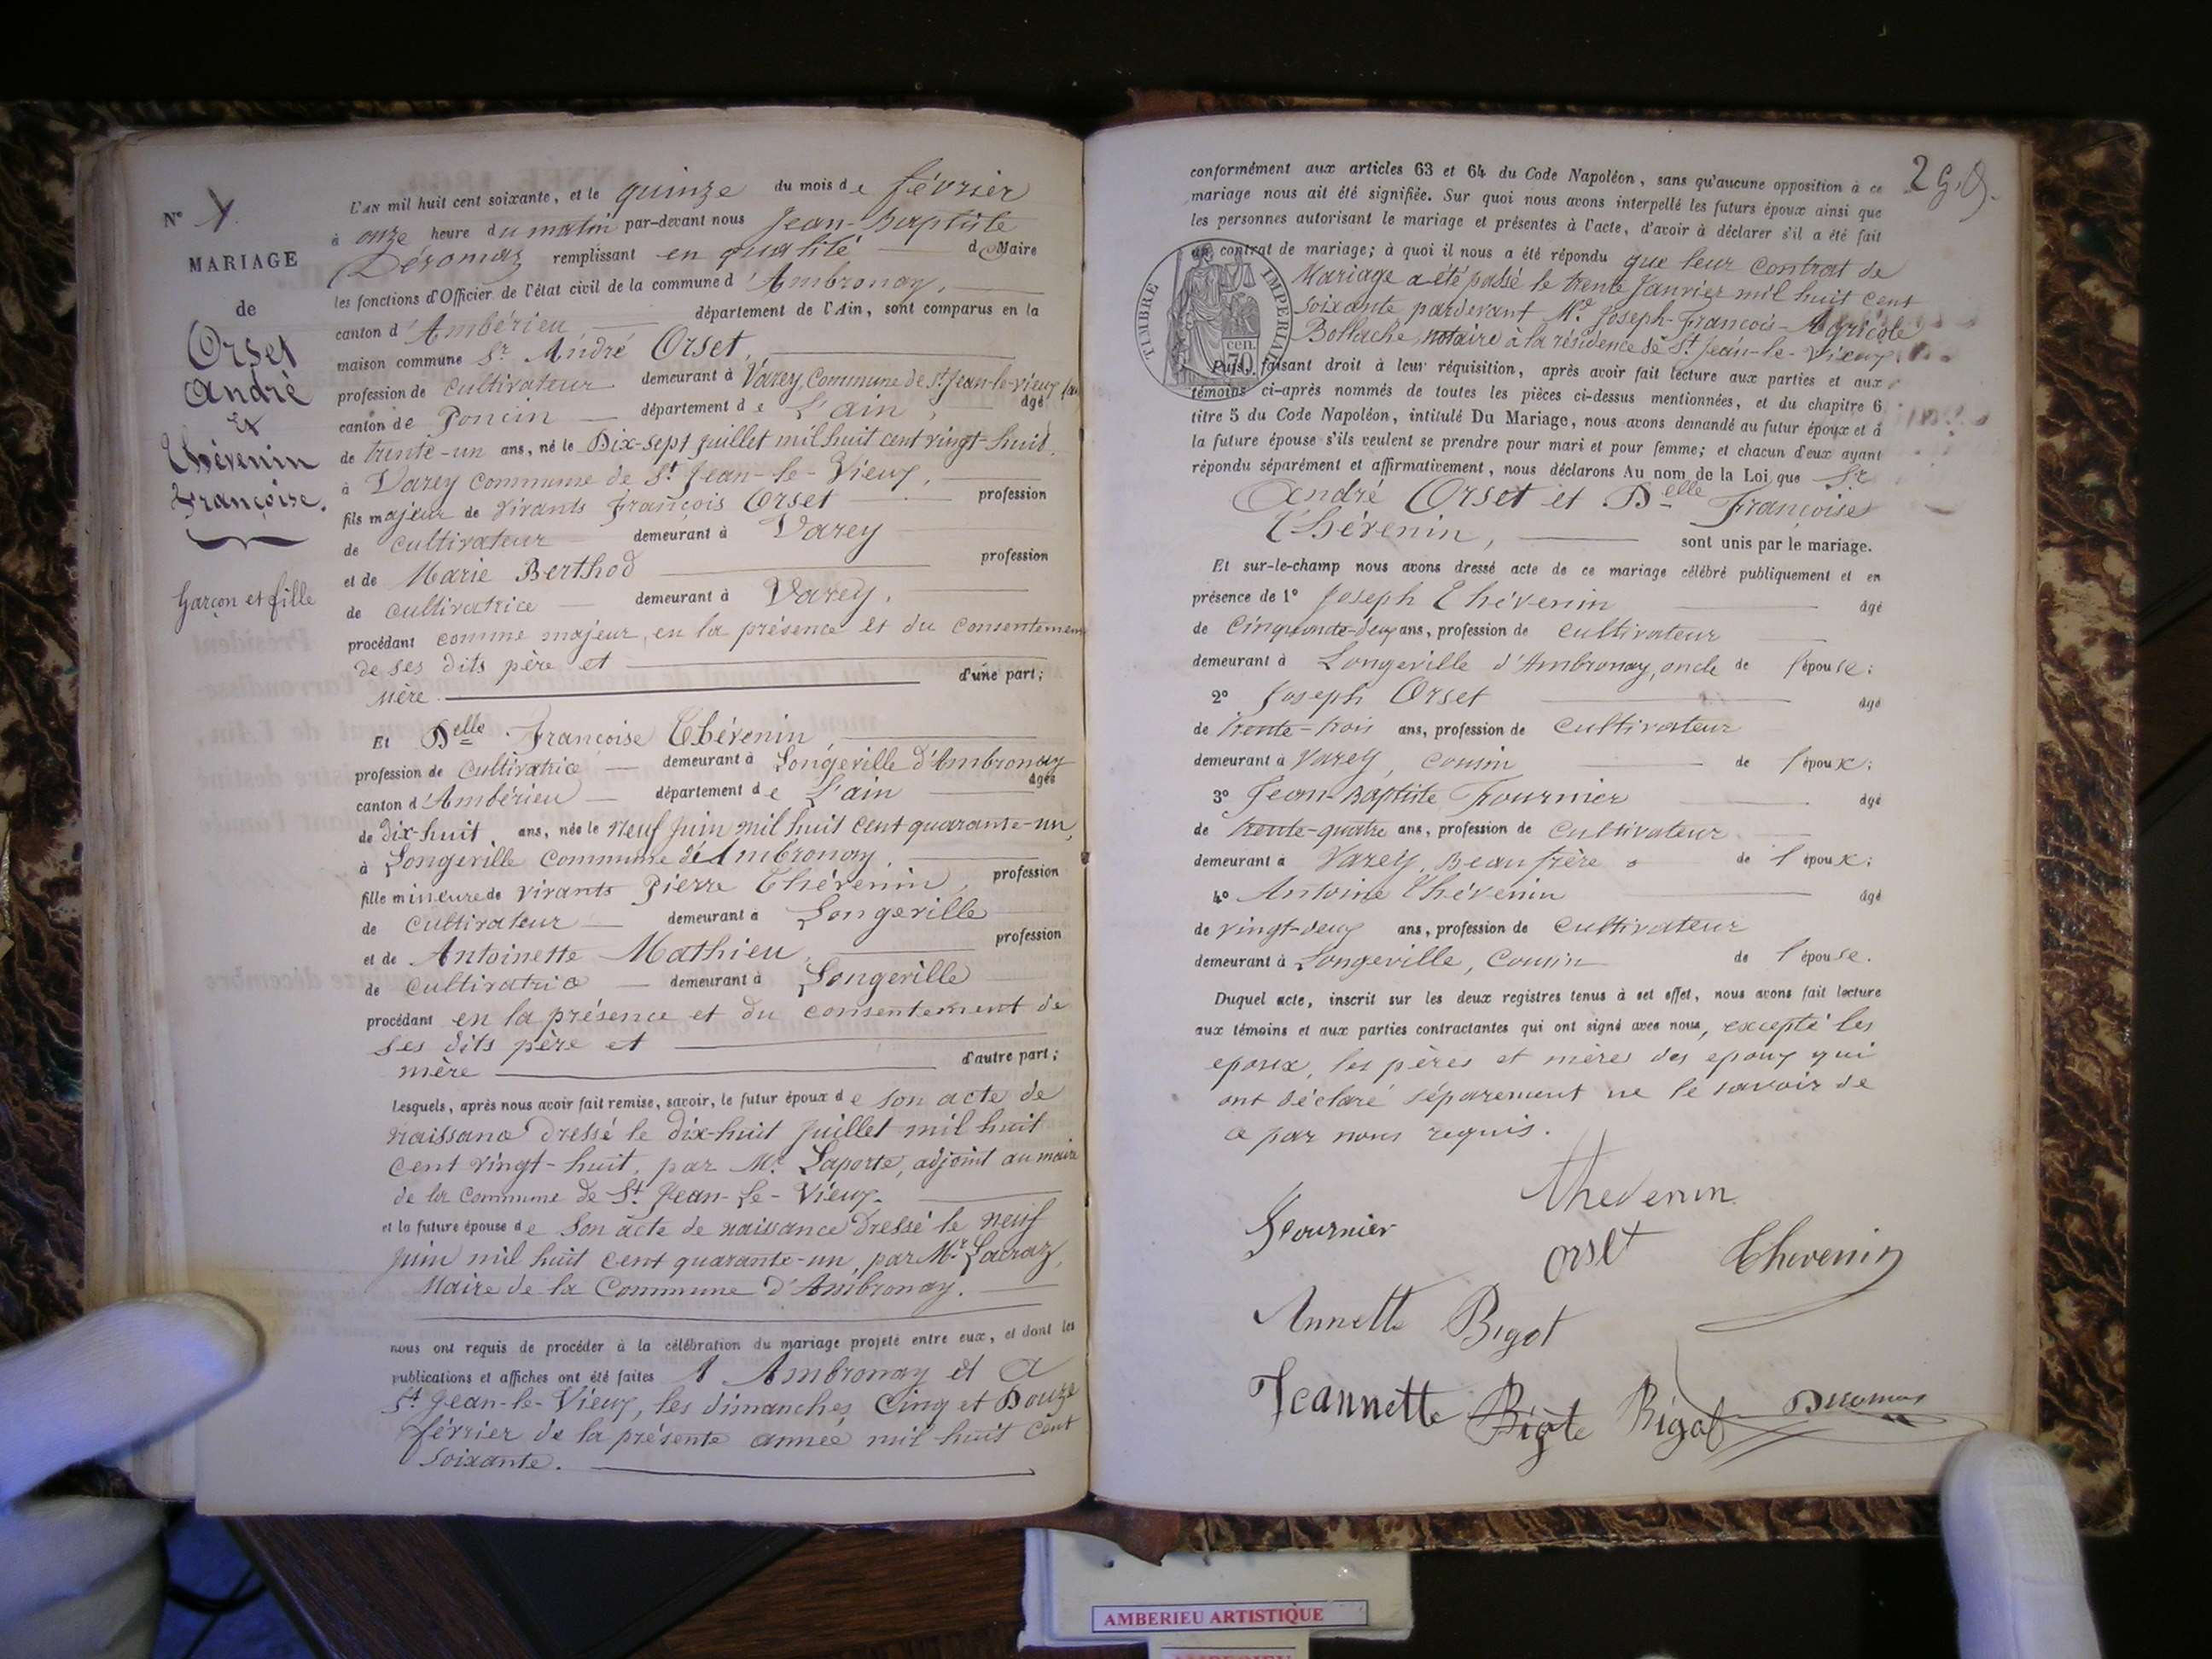 N° 1.
MARIAGE
de
Orset
André
et
Thévenin
Françoise.
Garçon et fille
L'AN mil huit cent soixante, et le quinze du mois de février
à onze heure du matin par-devant nous Jean-Baptiste
Déromas remplissant en qualité de Maire
les fonctions d'Officier de l'état civil de la commune d'Ambronay,
canton d'Ambérieu département de l'Ain, sont comparus en la
maison commune Sr André Orset,
profession de cultivateur demeurant à Varey, Commune de St Jean-le-Vieux
canton de Poncin département de L'ain, âgé
de trente-un ans, né le Dix-sept juillet mil huit cent vingt-huit.
à Varey commune de St Jean-le-Vieux,
fils majeur de vivants François Orset profession
de cultivateur demeurant à Varey
et de Marie Berthod profession
de cultivatrice demeurant à Varey,
procédant comme majeur, en la présence et du consentement
de ses dits père et
mère d'une part;
Et Delle Françoise Thévenin,
profession de cultivatrice demeurant à Longeville d'Ambronay
canton d'Ambérieu département de L'ain âgée
de dix-huit ans, née le neuf juin mil huit cent quarante-un,
à Longeville commune d'Ambronay,
fille mineure de vivants Pierre Thévenin, profession
de cultivateur demeurant à Longeville
et de Antoinette Mathieu, profession
de cultivatrice demeurant à Longeville
procédant en la présence et du consentement de
ses dits père et
mère d'autre part;
Lesquels, après nous avoir fait remise, savoir, le futur époux de son acte de
naissance dressé le dix-huit juillet mil huit
cent vingt-huit, par Mr Laporte, adjoint au maire
de la commune de St Jean-Le-Vieux.
et la future épouse de son acte de naissance dressé le neuf
juin mil huit cent quarante-un, par Mr Lacraz,
Maire de la Commune d'Ambronay.
nous ont requis de procéder à la célébration du mariage projeté entre eux, et dont les
publications et affiches ont été faites à Ambronay et à
St Jean-le-Vieux, les dimanches Cinq et Douze
février de la présente année mil huit cent
soixante.
conformément aux articles 63 et 64 du Code Napoléon, sans qu'aucune opposition à ce
mariage nous ait été signifiée. Sur quoi nous avons interpellé les futurs époux ainsi que
les personnes autorisant le mariage et présentes à l'acte, d'avoir à déclarer s'il a été fait
un contrat de mariage; à quoi il nous a été répondu que leur contrat de
Mariage a été passé le trente Janvier mil huit cent
soixante pardevant Me Joseph-François-Agricole
Bollache notaire à la résidence de St Jean-le-Vieux.
TIMBRE IMPERIAL
70 cen.
Puis, faisant droit à leur réquisition, après avoir fait lecture aux parties et aux
témoins ci-après nommés de toutes les pièces ci-dessus mentionnées, et du chapitre 6
titre 5 du Code Napoléon, intitulé Du Mariage, nous avons demandé au futur époux et à
la future épouse s'ils veulent se prendre pour mari et pour femme; et chacun d'eux ayant
répondu séparément et affirmativement, nous déclarons Au nom de la Loi que Sr
André Orset et Delle Françoise
Thévenin, sont unis par le mariage.
Et sur-le-champ nous avons dressé acte de ce mariage célébré publiquement et en
présence de 1° Joseph Thévenin âgé
de cinquante-deux ans, profession de cultivateur
demeurant à Longeville d'Ambronay, oncle de l'épouse;
2° Joseph Orset âgé
de trente-trois ans, profession de cultivateur
demeurant à Varey, cousin de l'époux;
3° Jean-Baptiste Fournier âgé
de trente-quatre ans, profession de cultivateur
demeurant à Varey, Beau frère de l'époux;
4° Antoine Thévenin âgé
de vingt-deux ans, profession de cultivateur
demeurant à Longeville, cousin de l'épouse.
Duquel acte, inscrit sur les deux registres tenus à cet effet, nous avons fait lecture
aux témoins et aux parties contractantes qui ont signé avec nous, excepté les
epoux, les pères et mères des epoux qui
ont déclaré séparement ne le savoir de
ce par nous requis.
thevenin
Fournier
orset
Thevenin
Annette Bigot
Jeannette Bigote Bigot
AMBERIEU ARTISTIQUE
AMBERIEU